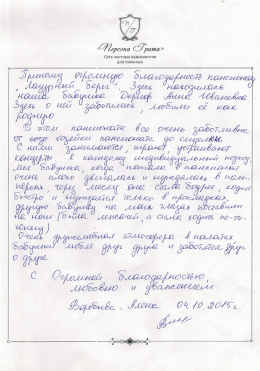 "Персона Грата"
Сеть частных пансионатов
для пожилых
Приношу огромную благодарность пансионату
"Лазурный берег". Здесь находилась
наша бабушка Анна Ивановна
Здесь о ней заботились, любили её как
родную
В этом пансионате все очень заботливые
От хозяйки пансионата до сиделки.
С ними занимаются, играют, устраивают
концерты, к каждому индивидуальный подход.
Моя бабушка, когда попала в пансионат
очень плохо двигалась и нуждалась в пам-
персах, через месяц она стала бодрее, ходит
быстро и нуждается только в прокладках,
другую бабушку на моих глазах поставили
на ноги (была лежачей, а стала ходить по-ти-
хоньку)
Очень дружелюбная атмосфера в палатах
бабушки любят друг друга и заботятся друг
о друге.
С Огромной благодарностью,
любовью и уважением
Воробьева Алена 04.10.2015г.